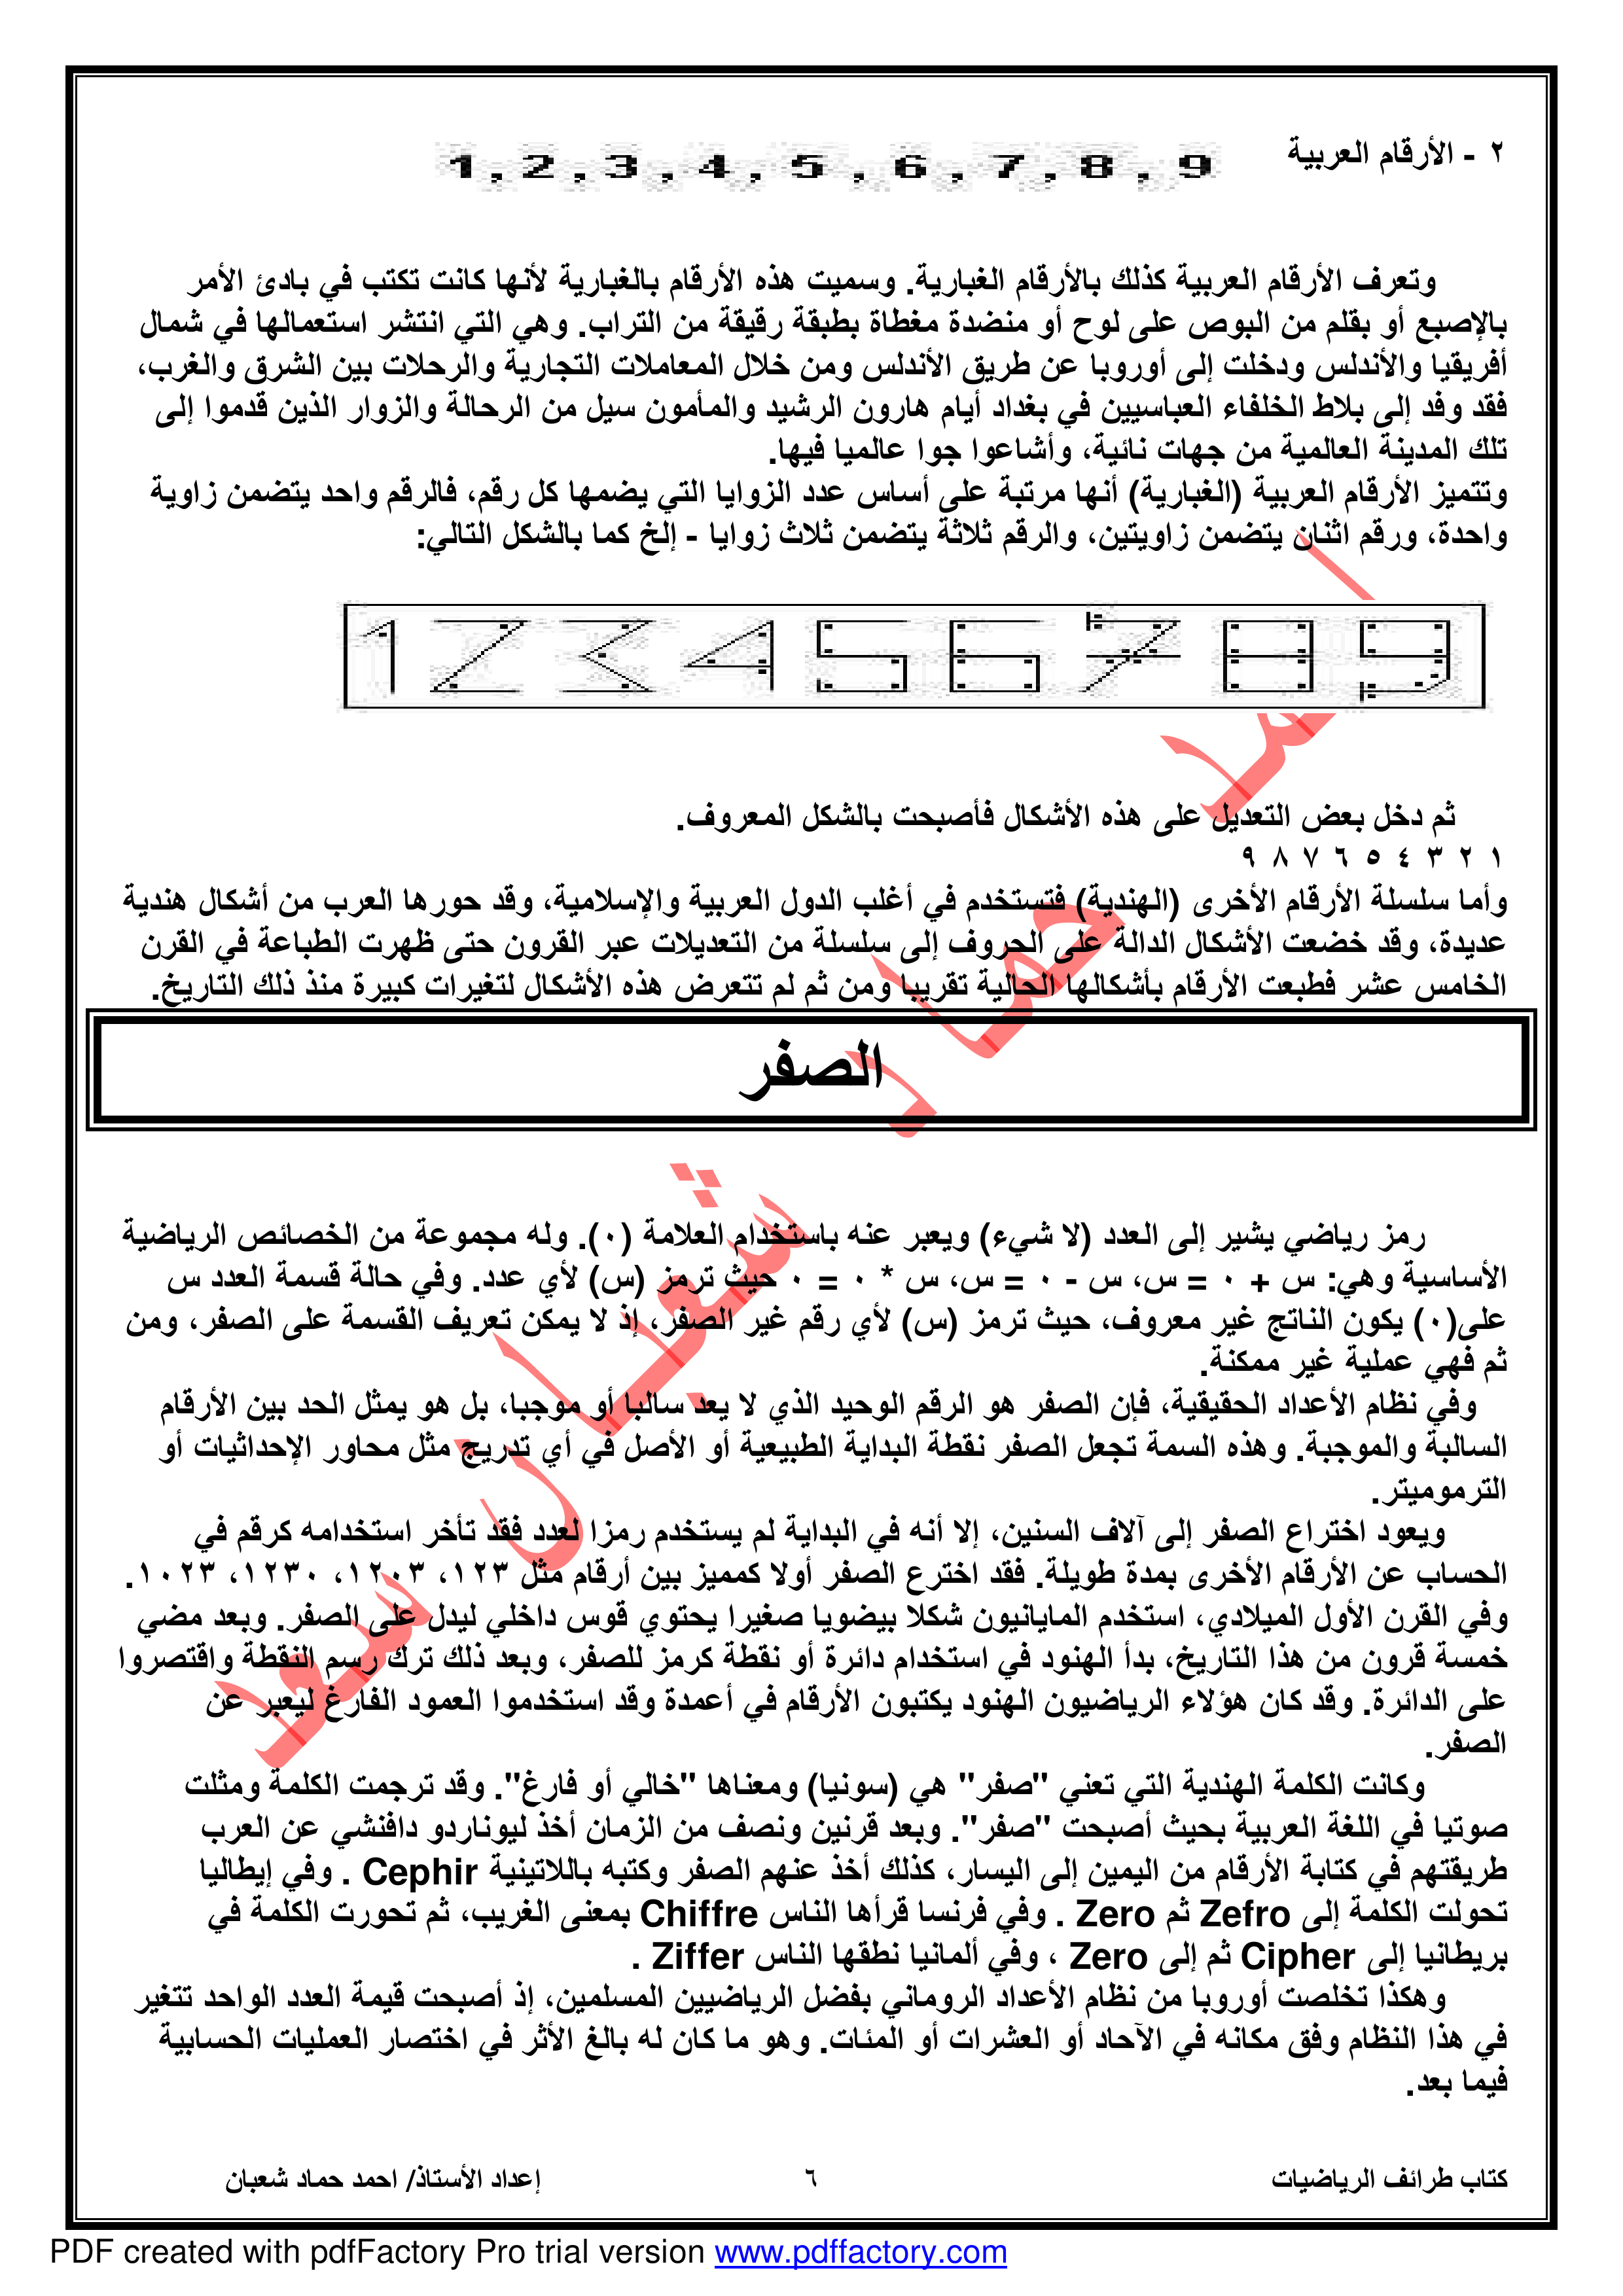 ٢ - الأرقام العربية 1 , 2 , 3 , 4 , 5 , 6 , 7 , 8 , 9
وتعرف الأرقام العربية كذلك بالأرقام الغبارية. وسميت هذه الأرقام بالغبارية لأنها كانت تكتب في بادئ الأمر
بالإصبع أو بقلم من البوص على لوح أو منضدة مغطاة بطبقة رقيقة من التراب. وهي التي انتشر استعمالها في شمال
أفريقيا والأندلس ودخلت إلى أوروبا عن طريق الأندلس ومن خلال المعاملات التجارية والرحلات بين الشرق والغرب،
فقد وفد إلى بلاط الخلفاء العباسيين في بغداد أيام هارون الرشيد والمأمون سيل من الرحالة والزوار الذين قدموا إلى
تلك المدينة العالمية من جهات نائية، وأشاعوا جوا عالميا فيها.
وتتميز الأرقام العربية (الغبارية) أنها مرتبة على أساس عدد الزوايا التي يضمها كل رقم، فالرقم واحد يتضمن زاوية
واحدة، ورقم اثنان يتضمن زاويتين، والرقم ثلاثة يتضمن ثلاث زوايا - إلخ كما بالشكل التالي:
1 2 3 4 5 6 7 8 9
ثم دخل بعض التعديل على هذه الأشكال فأصبحت بالشكل المعروف.
١ ٢ ٣ ٤ ٥ ٦ ٧ ٨ ٩
وأما سلسلة الأرقام الأخرى (الهندية) فتستخدم في أغلب الدول العربية والإسلامية، وقد حورها العرب من أشكال هندية
عديدة، وقد خضعت الأشكال الدالة على الحروف إلى سلسلة من التعديلات عبر القرون حتى ظهرت الطباعة في القرن
الخامس عشر فطبعت الأرقام بأشكالها الحالية تقريبا ومن ثم لم تتعرض هذه الأشكال لتغيرات كبيرة منذ ذلك التاريخ.
الصفر
رمز رياضي يشير إلى العدد (لا شيء) ويعبر عنه باستخدام العلامة (٠). وله مجموعة من الخصائص الرياضية
الأساسية وهي: س + ٠ = س، س - ٠ = س، س * ٠ = ٠ حيث ترمز (س) لأي عدد. وفي حالة قسمة العدد س
على(٠) يكون الناتج غير معروف، حيث ترمز (س) لأي رقم غير الصفر، إذ لا يمكن تعريف القسمة على الصفر، ومن
ثم فهي عملية غير ممكنة.
وفي نظام الأعداد الحقيقية، فإن الصفر هو الرقم الوحيد الذي لا يعد سالبا أو موجبا، بل هو يمثل الحد بين الأرقام
السالبة والموجبة. وهذه السمة تجعل الصفر نقطة البداية الطبيعية أو الأصل في أي تدريج مثل محاور الإحداثيات أو
الترموميتر.
ويعود اختراع الصفر إلى آلاف السنين، إلا أنه في البداية لم يستخدم رمزا لعدد فقد تأخر استخدامه كرقم في
الحساب عن الأرقام الأخرى بمدة طويلة. فقد اخترع الصفر أولا كمميز بين أرقام مثل ١٢٣، ١٢٠٣، ١٢٣٠، ١٠٢٣.
وفي القرن الأول الميلادي، استخدم المايانيون شكلا بيضويا صغيرا يحتوي قوس داخلي ليدل على الصفر. وبعد مضي
خمسة قرون من هذا التاريخ، بدأ الهنود في استخدام دائرة أو نقطة كرمز للصفر، وبعد ذلك ترك رسم النقطة واقتصروا
على الدائرة. وقد كان هؤلاء الرياضيون الهنود يكتبون الأرقام في أعمدة وقد استخدموا العمود الفارغ ليعبر عن
الصفر.
وكانت الكلمة الهندية التي تعني "صفر" هي (سونيا) ومعناها "خالي أو فارغ". وقد ترجمت الكلمة ومثلت
صوتيا في اللغة العربية بحيث أصبحت "صفر". وبعد قرنين ونصف من الزمان أخذ ليوناردو دافنشي عن العرب
طريقتهم في كتابة الأرقام من اليمين إلى اليسار، كذلك أخذ عنهم الصفر وكتبه باللاتينية Cephir . وفي إيطاليا
تحولت الكلمة إلى Zefro ثم Zero . وفي فرنسا قرأها الناس Chiffre بمعنى الغريب، ثم تحورت الكلمة في
بريطانيا إلى Cipher ثم إلى Zero ، وفي ألمانيا نطقها الناس Ziffer .
وهكذا تخلصت أوروبا من نظام الأعداد الروماني بفضل الرياضيين المسلمين، إذ أصبحت قيمة العدد الواحد تتغير
في هذا النظام وفق مكانه في الآحاد أو العشرات أو المئات. وهو ما كان له بالغ الأثر في اختصار العمليات الحسابية
فيما بعد.
كتاب طرائف الرياضيات ٦ إعداد الأستاذ/ احمد حماد شعبان
PDF created with pdfFactory Pro trial version www.pdffactory.com